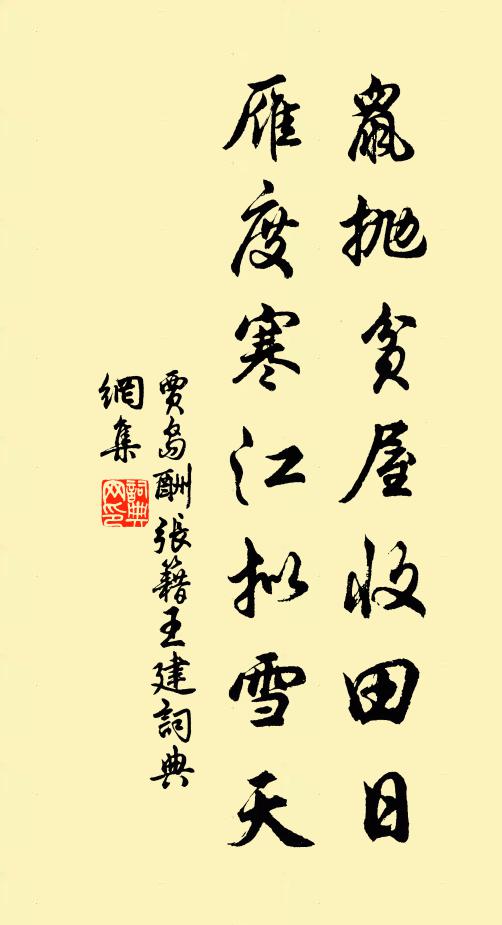 鼠抛貧屋收田日
雁度寒江拟雪天
賈島酬張籍王建詞典
網集
詞典
网印